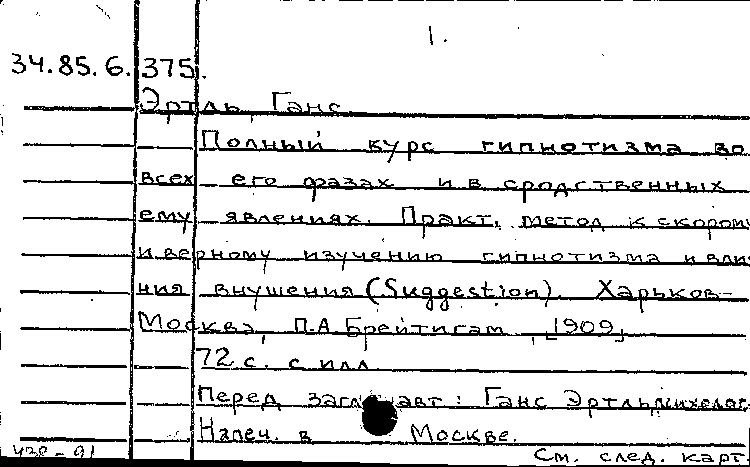 1.
34.85.6.375.
Эртль, Ганс.
Полный курс гипнотизма во
всех его фазах и в сродственных
ему явлениях. Практ. метод к скорому
и верному изучению гипнотизма и вли
ния внушения (Suggestion). Харьков-
Москва, П.А. Брейтигам, [1909].
72 с. с илл.
Перед загл. авт: Ганс Эртль,
Напеч. в Москве.
См. след. карт.